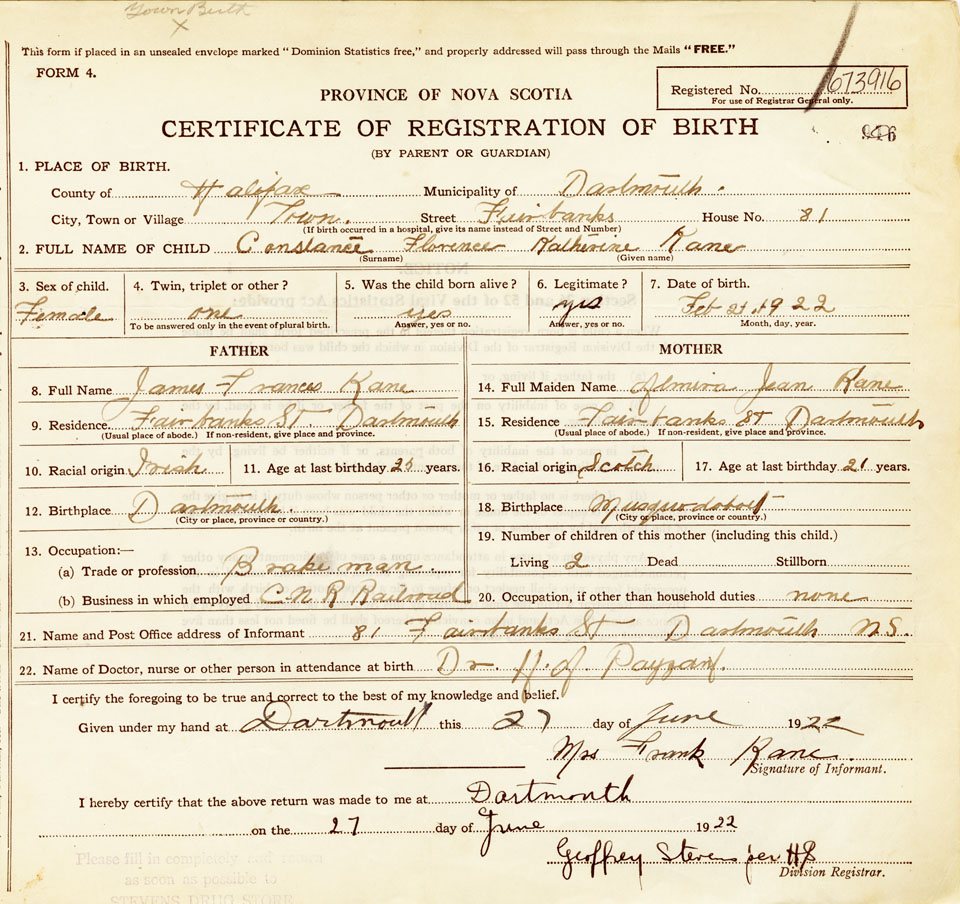 Town Birth
X
This form if placed in an unsealed envelope marked "Dominion Statistics free," and properly addressed will pass through the Mails "FREE."
FORM 4.
Registered No. 673916
For use of Registrar General only.
PROVINCE OF NOVA SCOTIA
CERTIFICATE OF REGISTRATION OF BIRTH
(BY PARENT OR GUARDIAN)
1. PLACE OF BIRTH.
County of Halifax Municipality of Dartmouth.
City, Town or Village Town. Street Fairbanks House No. 81
(If birth occurred in a hospital, give its name instead of Street and Number)
2. FULL NAME OF CHILD Constance Florence Katherine Kane
(Surname) (Given name)
3. Sex of child. 4. Twin, triplet or other? 5. Was the child born alive? 6. Legitimate? 7. Date of birth.
Female one yes yes Feb 1922
To be answered only in the event of plural birth. Answer, yes or no. Answer, yes or no. Month, day, year.
FATHER MOTHER
8. Full Name James Frances Kane 14. Full Maiden Name Elmira Jean Kane
9. Residence. Fairbanks St. Dartmouth 15. Residence Fairbanks St Dartmouth
(Usual place of abode.) If non-resident, give place and province. (Usual place of abode.) If non-resident, give place and province.
10. Racial origin Irish 11. Age at last birthday 25 years. 16. Racial origin Scotch 17. Age at last birthday 21 years.
12. Birthplace Dartmouth. 18. Birthplace Musquodoboit
(City or place, province or country.) (City or place, province or country.)
13. Occupation:— 19. Number of children of this mother (including this child.)
(a) Trade or profession Brakeman. Living 2 Dead Stillborn
(b) Business in which employed C N R Railroad 20. Occupation, if other than household duties none
21. Name and Post Office address of Informant 81 Fairbanks St Dartmouth N.S.
22. Name of Doctor, nurse or other person in attendance at birth Dr. H. J. Payzant.
I certify the foregoing to be true and correct to the best of my knowledge and belief.
Given under my hand at Dartmouth this 27 day of June 1922
Mrs Frank Kane
Signature of Informant.
I hereby certify that the above return was made to me at Dartmouth
on the 27 day of June 1922
Geoffrey Stevens per HS
Division Registrar.
Please fill in completely and return
as soon as possible to
STEVENS DRUG STORE